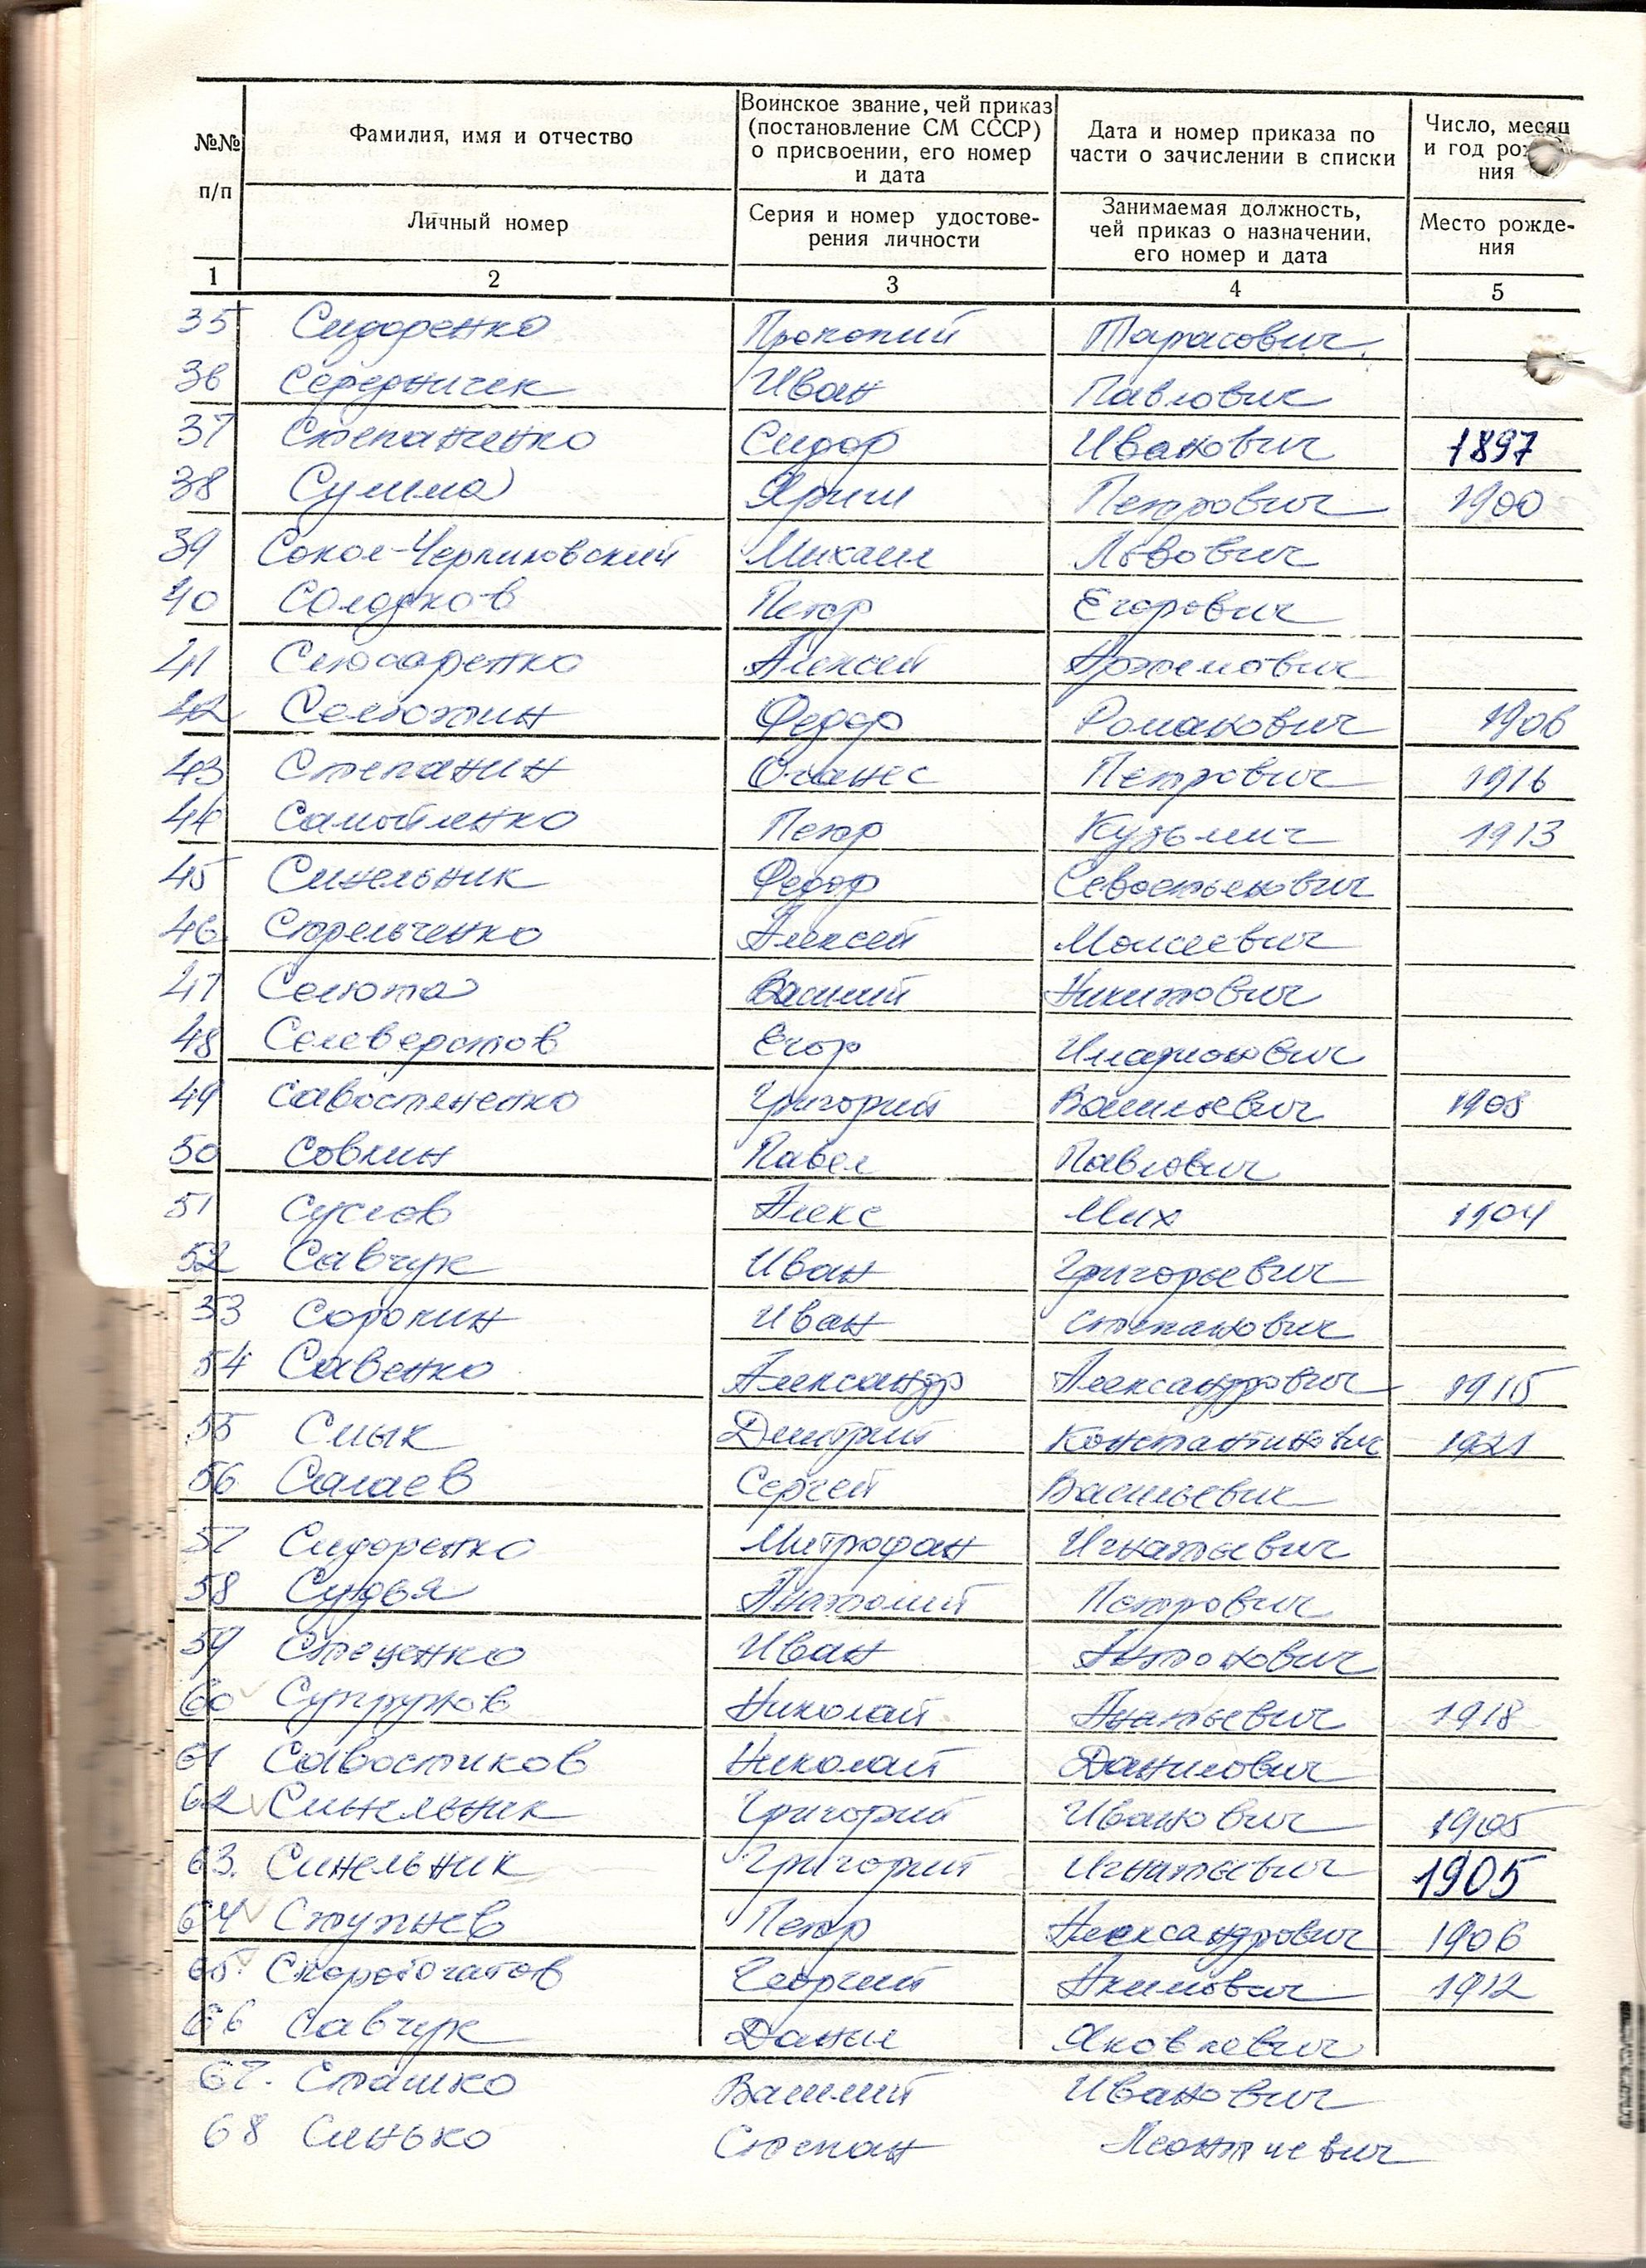 №№ п/п
Фамилия, имя и отчество
Личный номер
Воинское звание, чей приказ
(постановление СМ СССР)
о присвоении, его номер
и дата
Серия и номер удостове-
рения личности
Дата и номер приказа по
части о зачислении в списки
Занимаемая должность,
чей приказ о назначении,
его номер и дата
Число, месяц
и год рожде-
ния
Место рожде-
ния
1 2 3 4 5
35 Сидоренко Прокопий Тарасович
36 Середничек Иван Павлович
37 Степаненко Сидор Иванович 1897
38 Сулима Ярыш Петрович 1900
39 Сокол-Черниловский Михаил Львович
40 Солодков Петр Егорович
41 Слюсаренко Алексей Артемович
42 Селютин Федор Романович 1906
43 Степанин Оганес Петрович 1916
44 Самойленко Петр Кузьмич 1913
45 Синельник Федор Севостьенович
46 Стрельченко Алексей Моисеевич
47 Селюта Василий Никитович
48 Селеверстов Егор Иларионович
49 Савостененко Григорий Васильевич 1908
50 Совкин Павел Павлович
51 Суслов Алекс Мих 1904
52 Савчук Иван Григорьевич
53 Сорокин Иван Степанович
54 Савенко Александр Александрович 1915
55 Смык Дмитрий Константинович 1921
56 Салаев Сергей Васильевич
57 Сидоренко Митрофан Игнатьевич
58 Судья Анатолий Петрович
59 Стеценко Иван Антонович
60 Супрунов Николай Игнатьевич 1918
61 Савостиков Николай Данилович
62 Синельник Григорий Иванович 1905
63. Синельник Григорий Игнатьевич 1905
64 Ступнев Петр Александрович 1906
65 Скоробогатов Георгий Акимович 1912
66 Савчук Данил Яковлевич
67. Сташко Василий Иванович
68 Синько Степан Леонтиевич